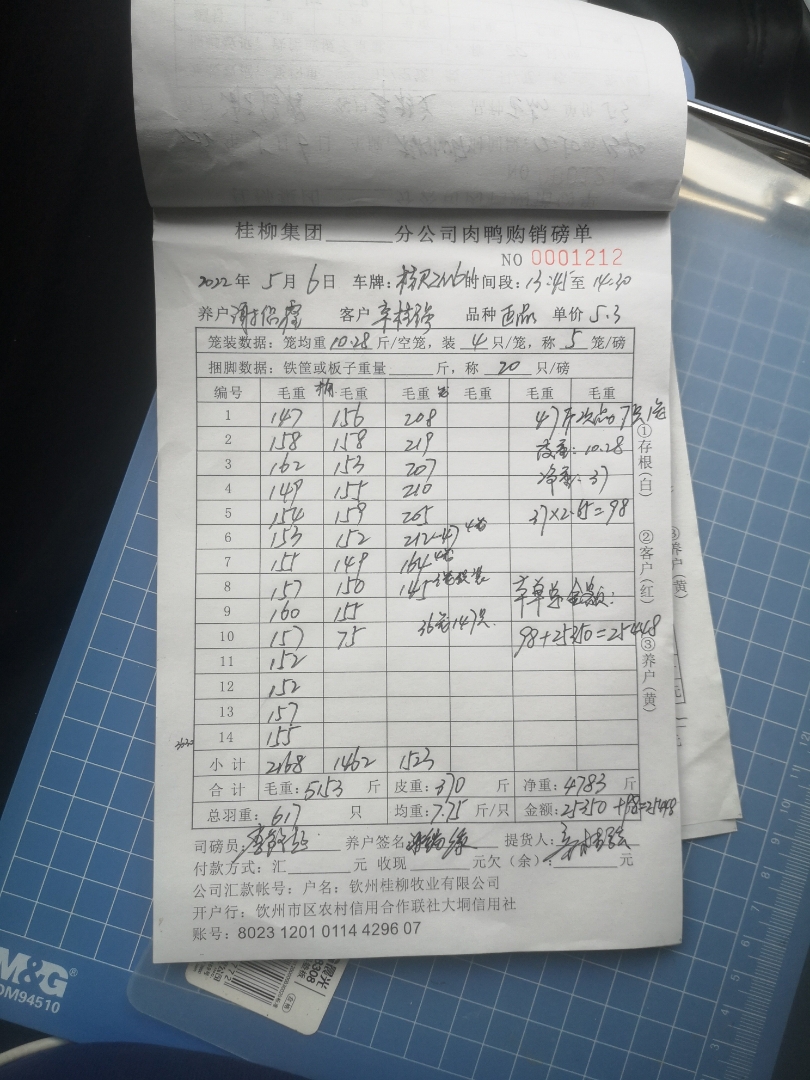 桂柳集团______分公司肉鸭购销磅单
NO 0001212
2022年 5月 6日 车牌: 时间段:13:45至 14:30
养户 客户 辛桂强 品种 西品 单价 5.3
笼装数据:笼均重 10.28 斤/空笼,装 4 只/笼,称 5 笼/磅
捆脚数据:铁筐或板子重量____斤,称 20 只/磅
编号 毛重 毛重 毛重 毛重 毛重 毛重
1 147 156 208 47斤次品7只1笼
2 158 158 219 皮重:10.28
3 162 153 207 净重:37
4 149 155 210
5 154 159 205 37×2.65=98
6 153 152 212-47
7 155 149 164
8 157 150 145 辛单总金额:
9 160 155 36笼147只
10 157 75 98+25350=25448
11 152
12 152
13 157
14 155
小计 2168 1462 1523
合计 毛重:5153 斤 皮重:370 斤 净重:4783 斤
总羽重:617 只 均重:7.75 斤/只 金额:25350+98=25448
司磅员: 养户签名 提货人:辛桂强
付款方式:汇______元 收现______元欠(余):______元
公司汇款帐号:户名:钦州桂柳牧业有限公司
开户行:钦州市区农村信用合作联社大垌信用社
账号:8023 1201 0114 4296 07
①存根(白)
②客户(红)
③养户(黄)
③养户(黄)
M&G
DM94510